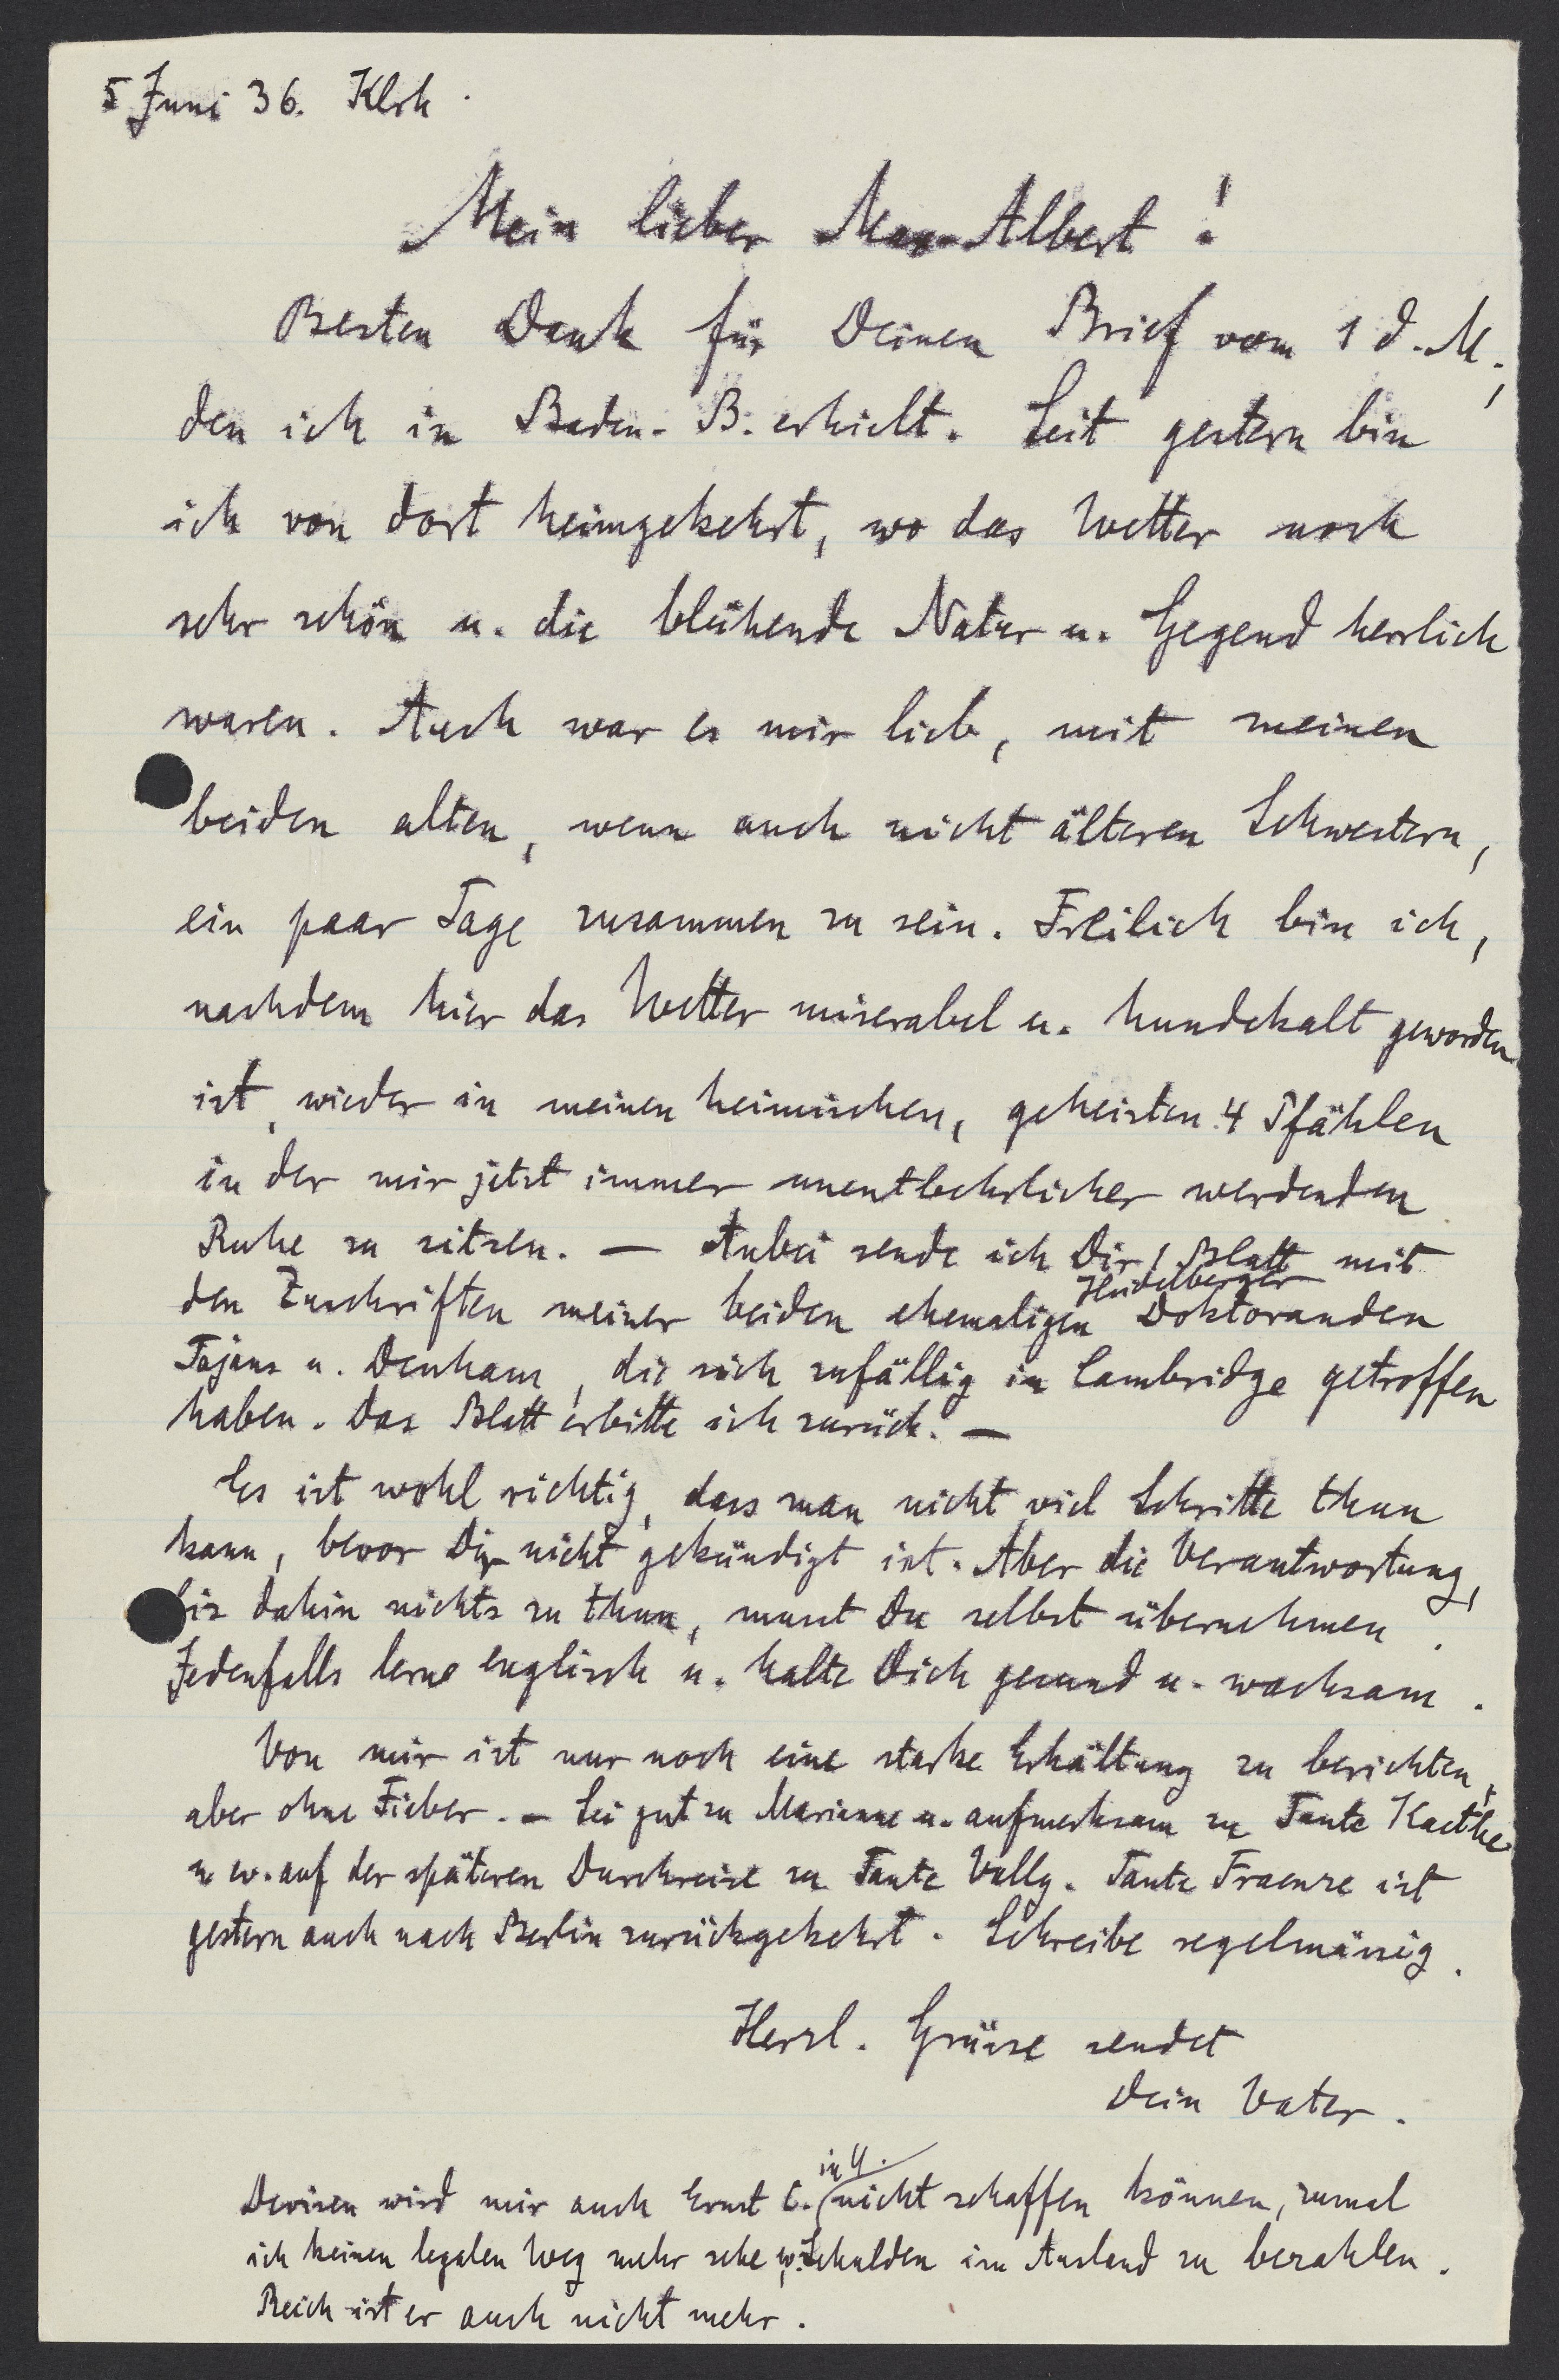 5 Juni 36. Klrh.
Mein lieber Max-Albert!
Besten Dank für Deinen Brief vom 1 d. M.,
den ich in Baden-B. erhielt. Seit gestern bin
ich von dort heimgekehrt, wo das Wetter noch
sehr schön u. die blühende Natur u. Gegend herrlich
waren. Auch war es mir lieb, mit meinen
beiden alten, wenn auch nicht älteren Schwestern,
ein paar Tage zusammen zu sein. Freilich bin ich,
nachdem hier das Wetter miserabel u. hundekalt geworden
ist, wieder in meinen heimischen, geheizten 4 Pfählen
in der mir jetzt immer unentbehrlicher werdenden
Ruhe zu sitzen. — Anbei sende ich Dir 1 Blatt mit
den Zuschriften meiner beiden ehemaligen Heidelberger Doktoranden
Fajans u. Denham, die sich zufällig in Cambridge getroffen
haben. Das Blatt erbitte ich zurück. —
Es ist wohl richtig, dass man nicht viel Schritte thun
kann, bevor Dir nicht gekündigt ist. Aber die Verantwortung,
bis dahin nichts zu thun, musst Du selbst übernehmen.
Jedenfalls lerne englisch u. halte Dich gesund u. wachsam.
Von mir ist nur noch eine starke Erkältung zu berichten,
aber ohne Fieber. — Sei gut zu Marianne u. aufmerksam zu Tante Kaethe
u ev. auf der späteren Durchreise zu Tante Vally. Tante Fraenze ist
gestern auch nach Berlin zurückgekehrt. Schreibe regelmässig.
Herzl. Grüsse sendet
Dein Vater.
Devisen wird mir auch Ernst C. in U. nicht schaffen können, zumal
ich keinen legalen Weg mehr sehe, Schulden im Ausland zu bezahlen.
Reich ist er auch nicht mehr.